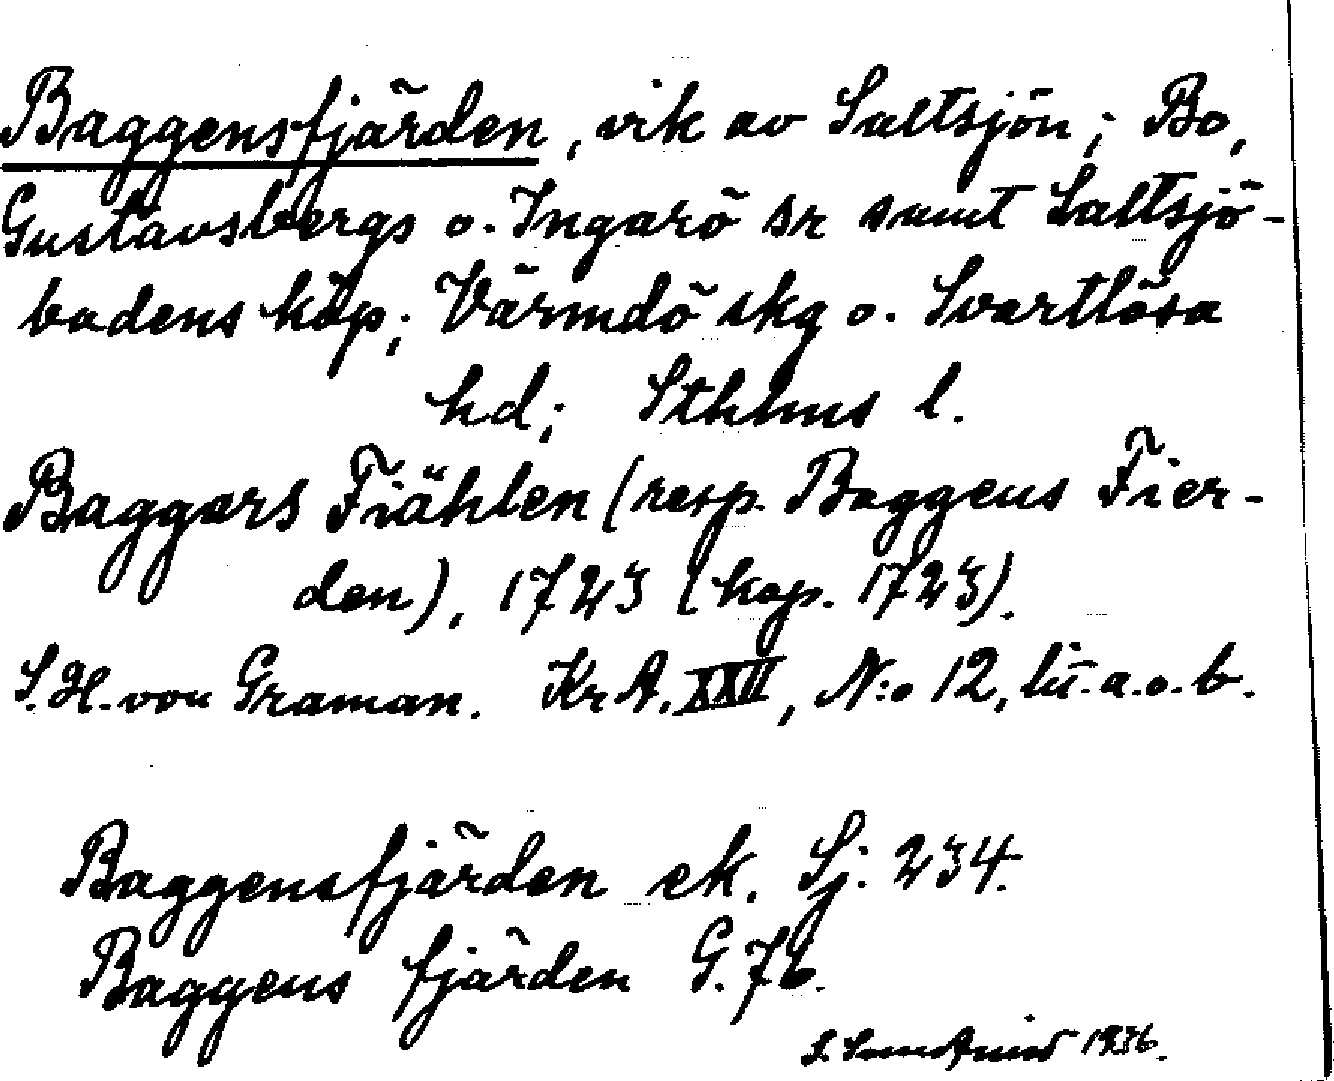 Baggensfjärden, vik av Saltsjön; Bo,
Gustavsbergs o. Ingarö sr samt Saltsjö-
badens köp; Värmdö skg o. Svartlösa
hd; Sthlms l.
Baggars Fiählen (resp. Baggens Fier-
den), 1723 (kop. 1723).
S. H. von Graman. Kr A. XXII, N:o 12, lit. a. o. b.
Baggensfjärden ek. Sj. 234.
Baggens fjärden G. 76.
1936.